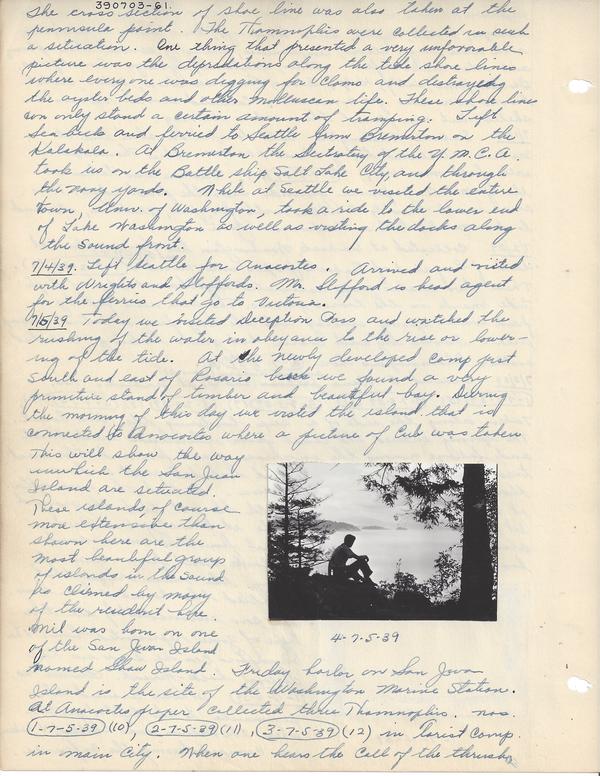 390703-61
The cross section of shore line was also taken at the
penninsula point. The Thamnophis were collected in such
a situation. One thing that presented a very unfavorable
picture was the depredations along the tide shore lines
where everyone was digging for clams and destroying
the oyster beds and other Molluscan life. These shore lines
can only stand a certain amount of tramping. Left
Sea beck and ferried to Seattle from Bremerton on the
Kalakala. At Bremerton the Secretary of the Y.M.C.A.
took us on the Battle ship Salt Lake City, and through
the navy yards. While at Seattle we visited the entire
town, Univ. of Washington, took a ride to the lower end
of Lake Wasington as well as visiting the docks along
the sound front.
7/4/39. Left Seattle for Anacortes. Arrived and visited
with Wrights and Sloffords. Mr. Slofford is head agent
for the ferries that go to Victoria.
7/5/39 Today we visited Deception Pass and watched the
rushing of the water in obeyance to the rise or lower-
ing of the tide. At the newly developed camp just
South and east of Rosario we found a very
primitive stand of timber and beautiful bay. During
the morning of this day we visted the island that is
connected to Anacortes where a picture of Cub was taken
This will show the way
in which the San Juan
Island are situated.
These islands of course
more extensive than
shown here are the
most beautiful group
of islands in the Sound
as claimed by many
of the resident here.
Mil was born on one
of the San Juan Island
named Shaw Island. Friday harbor on San Juan
Island is the site of the Washington Marine Station.
At Anacortes proper collected three Thamnophis. nos.
1-7-5-39 (10), 2-7-5-39 (11), 3-7-5-39 (12) in Torist Camp
in main City. When one hears the Call of the thrush
4-7-5-39